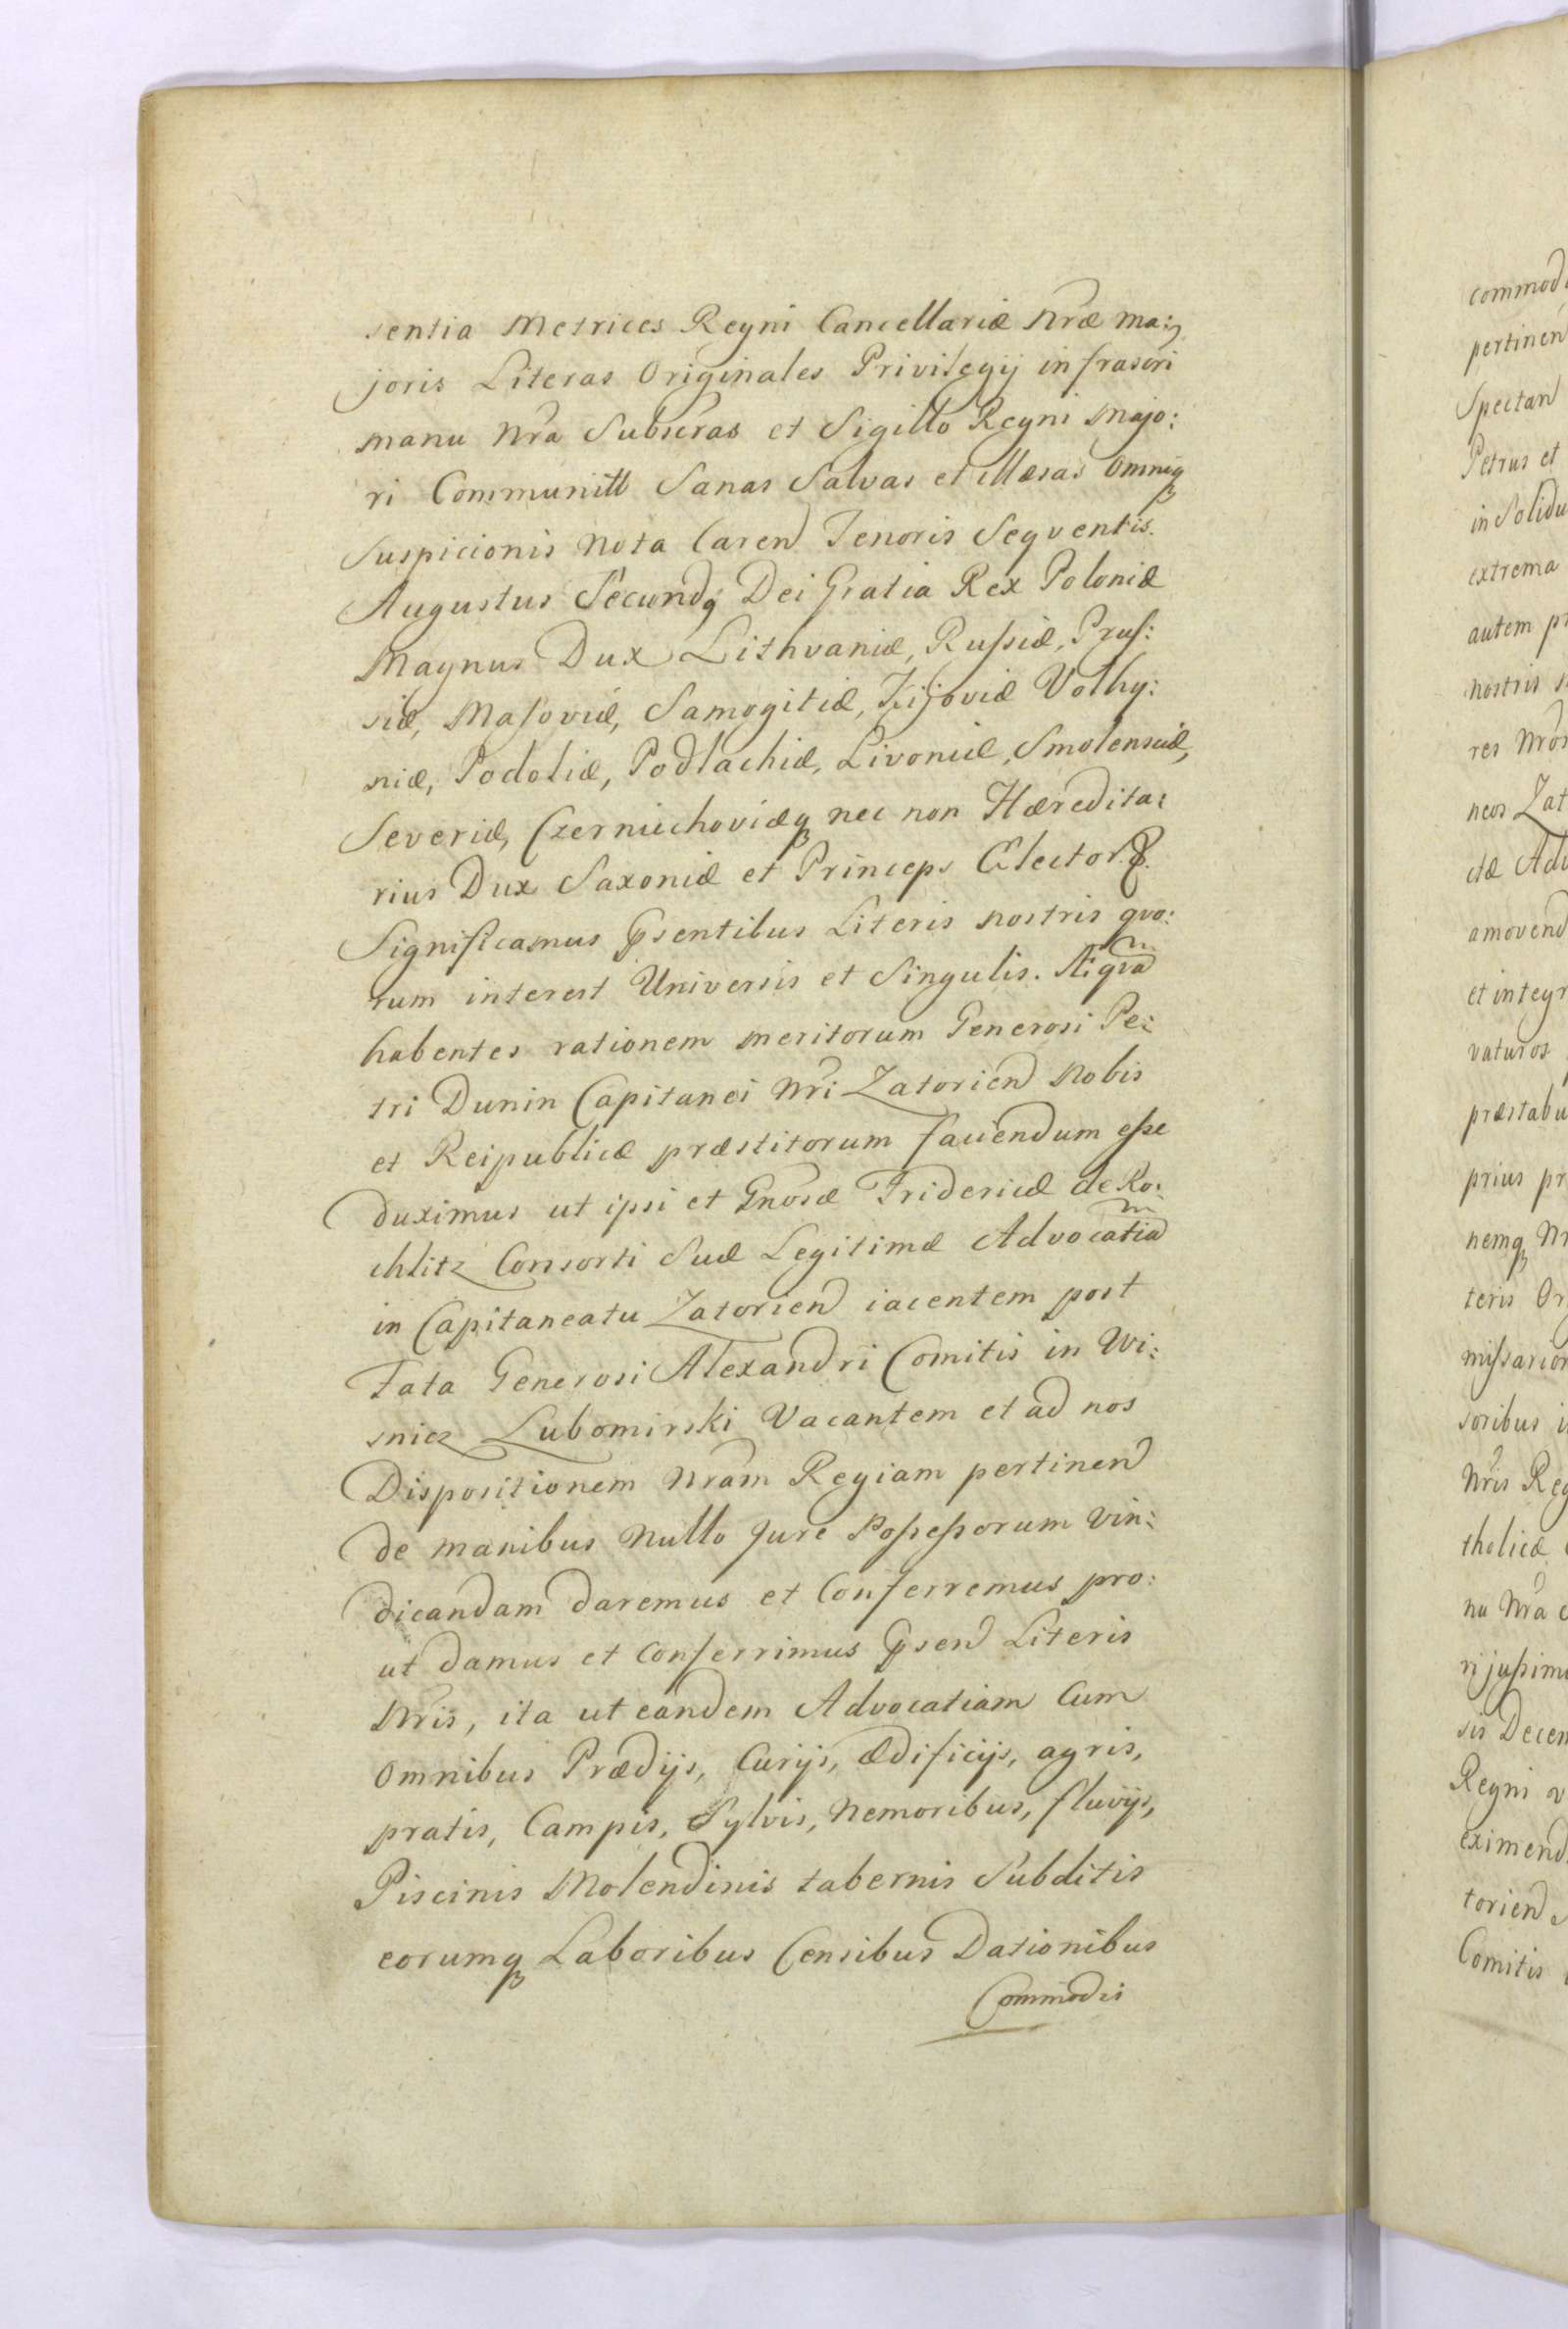 sentia Metrices Regni Cancellariæ Nræ ma:
joris Literas Originales Privilegij infrascri
manu Nra Subscras et Sigillo Regni Majo:
ri Communitt Sanas Salvas et illæsas Omniq
Suspicionis Nota Caren Tenoris Seqventis.
Augustus Secundq Dei Gratia Rex Poloniæ
Magnus Dux Lithvaniæ, Rußiæ, Prus:
siæ, Masoviæ, Samogitiæ, Kijoviæ Volhy:
niæ, Podoliæ, Podlachiæ, Livoniæ, Smolensciæ,
Severiæ, Czerniechoviæq nec non Hæredita:
rius Dux Saxoniæ et Princeps Elector &.
Significamus Psentibus Literis nostris qvo:
rum interest Universis et Singulis.
habentes rationem meritorum Generosi Pe:
tri Dunin Capitanei Nri Zatorien Nobis
et Reipublicæ præstitorum faciendum eße
duximus ut ipsi et Gnosæ Fridericæ de Ro:
chlitz Consorti Suæ Legitimæ Advocatia͠m
in Capitaneatu Zatorien iacentem post
Fata Generosi Alexandri Comitis in Wi:
snicz Lubomirski Vacantem et ad nos
Dispositionem Nram Regiam pertinen
de manibus Nullo Jure Poßeßorum Vin:
dicandam daremus et Conferremus pro:
ut damus et Conferrimus Psen Literis
Nris, ita ut eandem Advocatiam Cum
Omnibus Prædijs, Curijs, Ædificijs, agris,
pratis, Campis, Sylvis, Nemoribus, fluvijs,
Piscinis Molendinis tabernis Subditis
eorumq Laboribus Censibus Dationibus
Commodis
commod
pertinen
Spectan
Petrus et
in Solidu
extrema
autem pr
nostris
res Nros
neos Zat
ctæ Adv
amovend
et integr
vaturos
præstabu
prius pr
nemq Nr
teris Or
mißarior
soribus i
Nris Reg
tholicæ
nu Nra
ri jußim
sis Decem
Regni
eximend
torien
Comitis